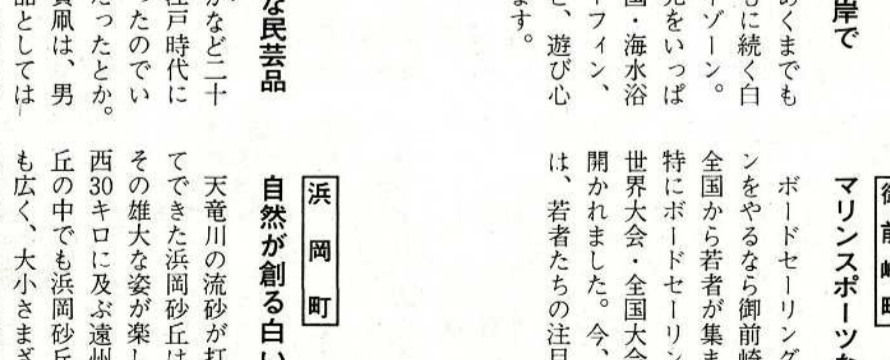 岸で
くまでも
に続く白
ゾーン。
をいっぱ
国・海水浴
ーフィン、
、遊び心
ます。
な民芸品
かなど二十
江戸時代に
ったのでい
ったとか。
賀凧は、男
品としては
御前崎町
マリンスポーツ
ボードセーリング
ンをやるなら御前崎
全国から若者が集ま
特にボードセーリン
世界大会・全国大会
開かれました。今、
は、若者たちの注目
浜岡町
自然が創る白い
天竜川の流砂が打
てできた浜岡砂丘は
その雄大な姿が楽し
西30キロに及ぶ遠州
丘の中でも浜岡砂丘
も広く、大小さまざ